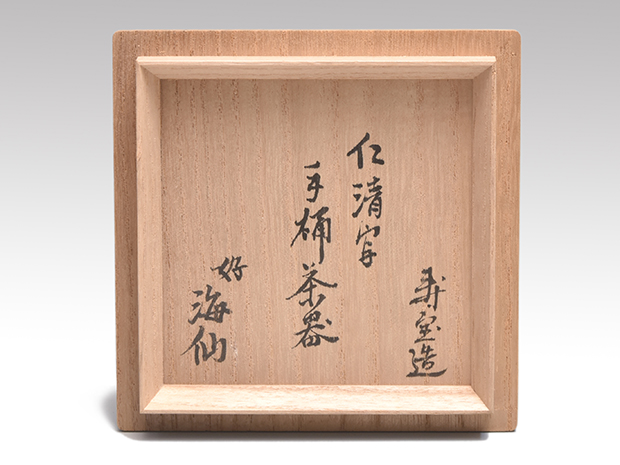 寿宝造
仁清写
手桶茶器
好 海仙